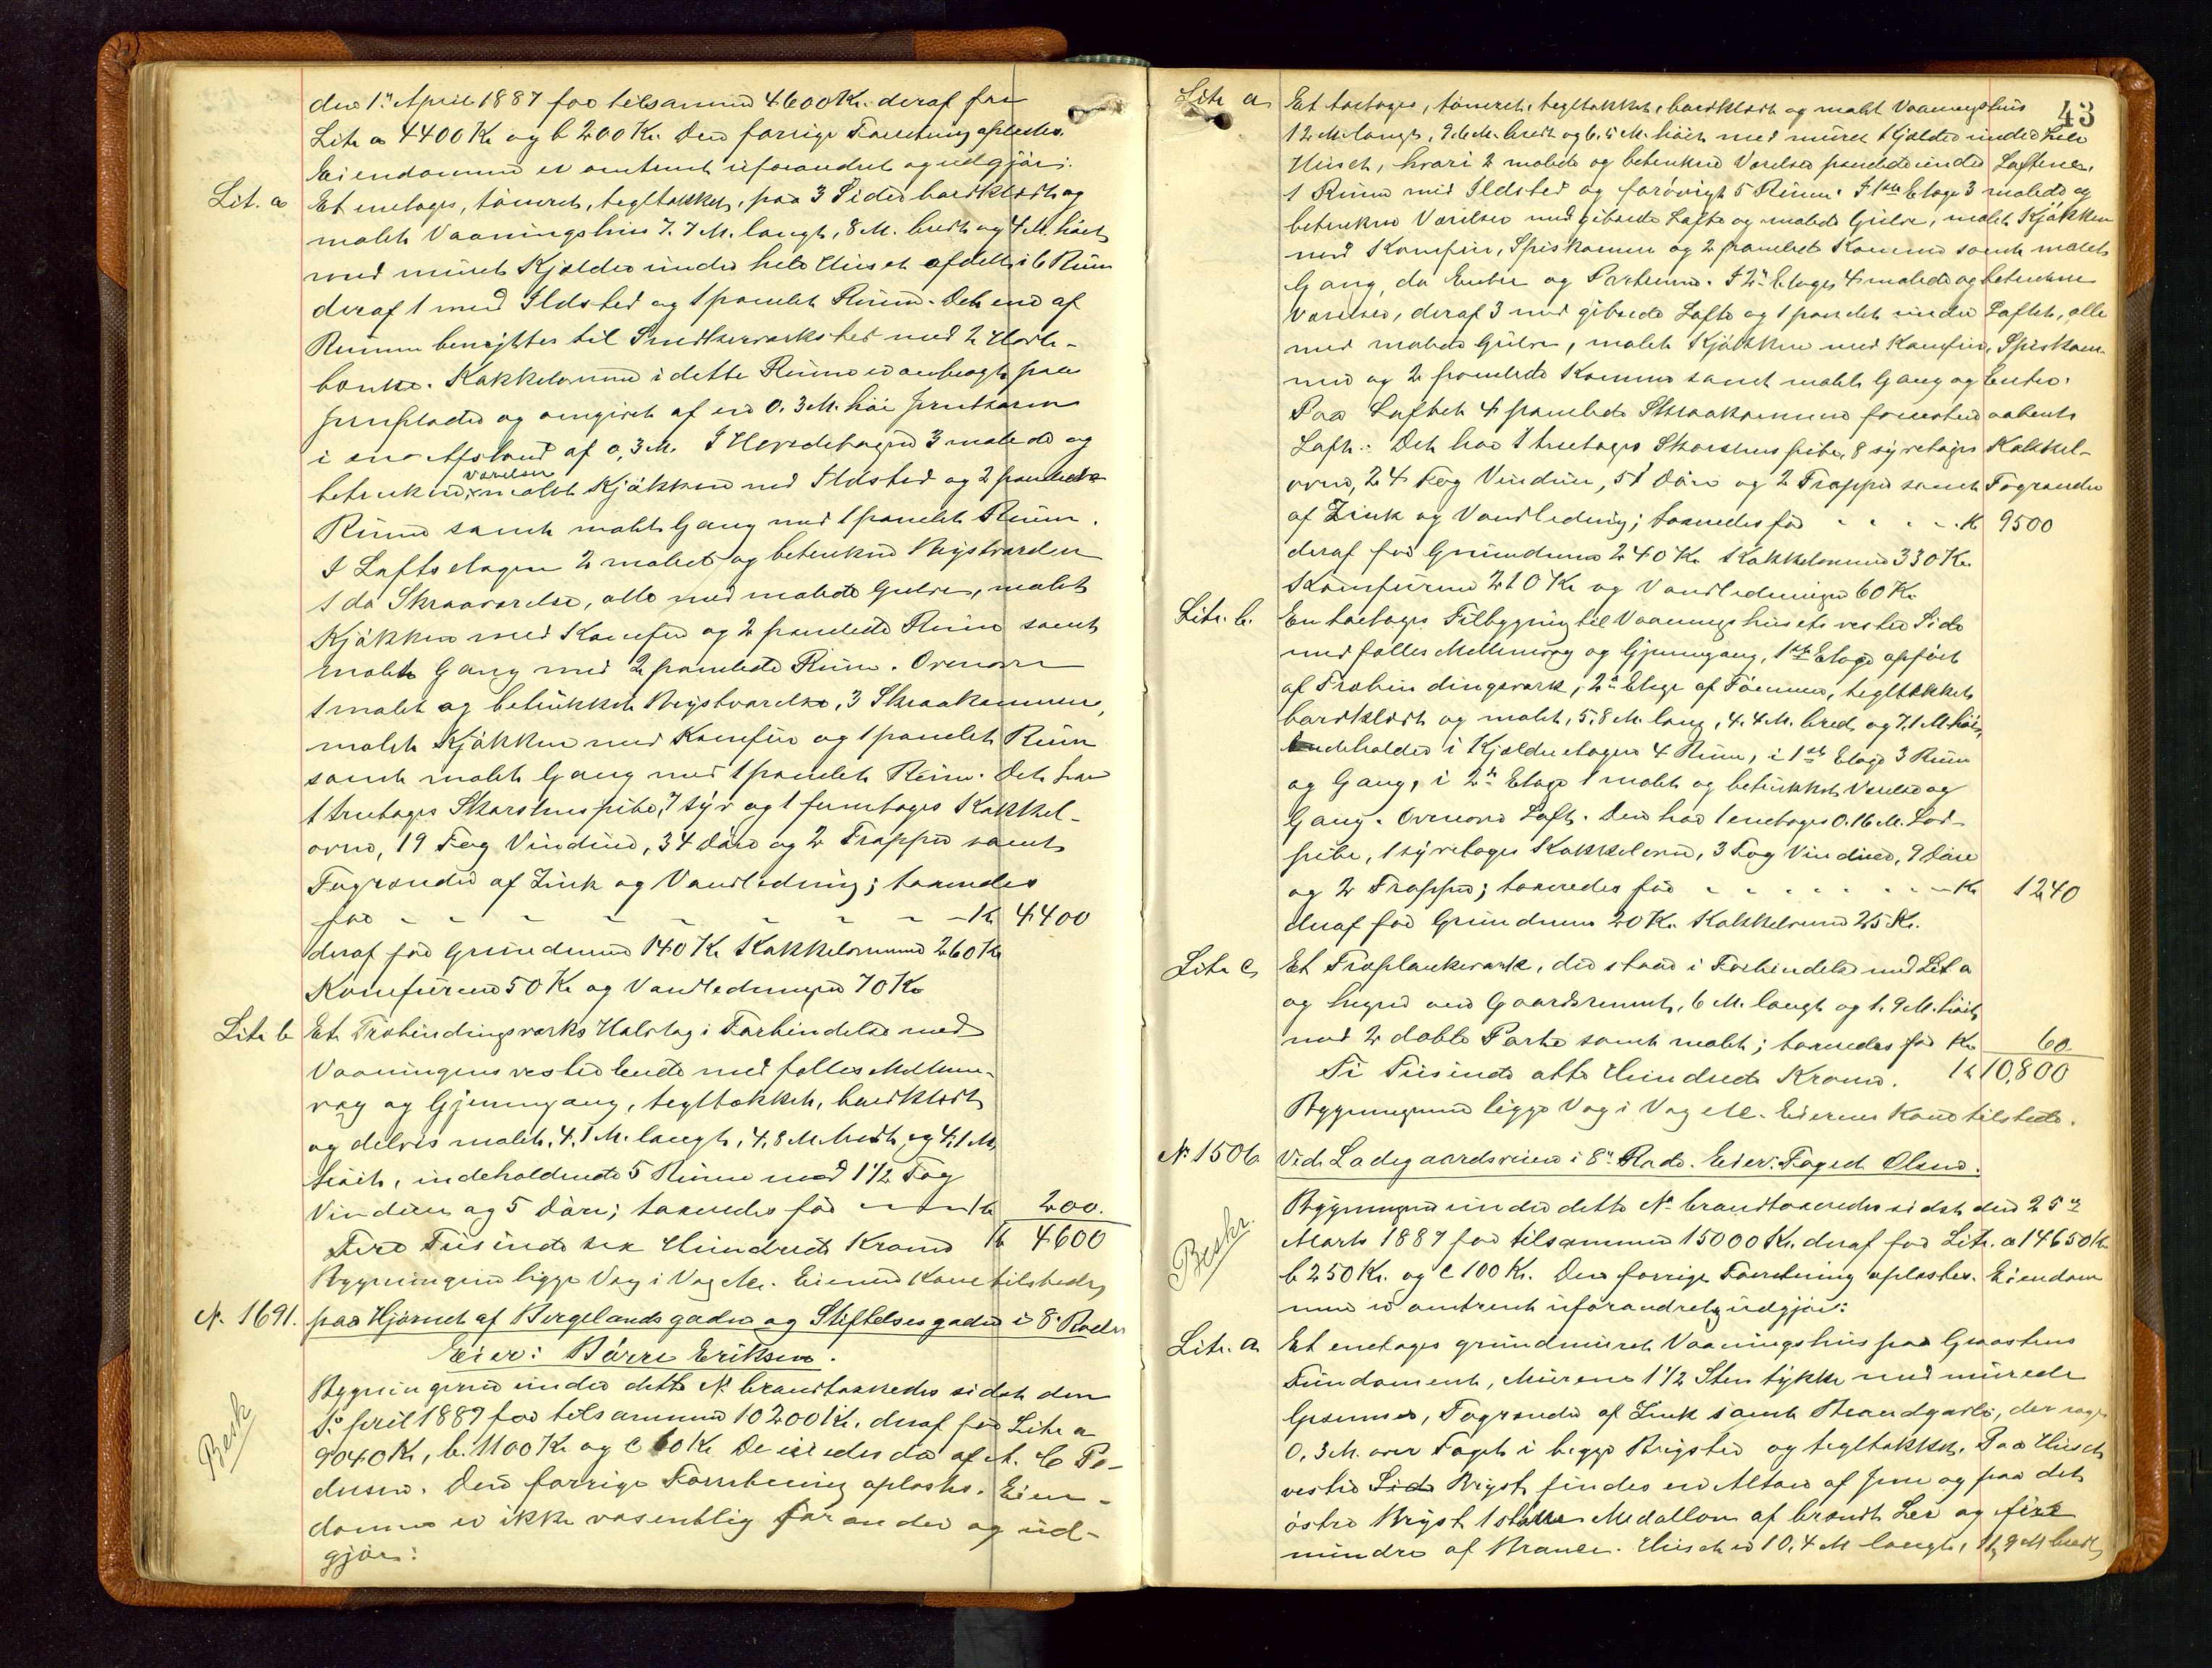 den 1ste April 1887 for tilsammen 4600 Kr. deraf for
Litr a 4400 Kr og b 200 Kr. Den forrige Forretning oplæstes.
Eiendommen er omtrent uforandret og udgjør:
Lit. a Et enetages, tømret, tegltækket, paa 3 Sider bordklædt og
malet Vaaningshus 7.7 M. langt, 8 M. bredt og 4 M. høit
med muret Kjælder under hele Huset afdelt i 6 Rum
deraf 1 med Ildsted og 1 panelet Rum. Det ene af
Rummene benyttes til Snedkerværksted med 2 Høvle-
bænke. Kakkelovnen i dette Rum er anbragt paa
Jernplader og omgivet af en 0.3 M. høi Jernkarm
i en Afstand af 0,3 M. I Hovedetagen 3 malede og
betrukne Værelser malet Kjøkken med Ildsted og 2 panelede
Rum samt malet Gang med 1 panelet Rum.
I Loftsetagen 2 malet og betrukne Brystværelser
1 do Skraaværelse, alle med malede Gulve, malet
Kjøkken med Komfur og 2 panelede Rum samt
malet Gang med 2 panelede Rum. Ovenover
1 malet og betrukket Brystværelse, 3 Skraakammere,
malet Kjøkken med Komfur og 1 panelet Rum
samt malet Gang med 1 panelet Rum. Det har
1 treetages Skorstenspibe, 7 syv og 1 femetages Kakkel-
ovne, 19 Fag Vinduer, 34 Døre og 2 Trapper samt
Tagrender af Zink og Vandledning; taxeredes
for - - - - - - - - Kr 4400
deraf for Grundmuren 140 Kr Kakkelovnene 260 Kr
Komfurene 50 Kr og Vandledningen 70 Kr
Litr b Et Træbindingsværks Halvtag i Forbindelse med
Vaaningens vestre Ende med fælles Mellem-
væg og Gjennemgang, tegltækket, bordklædt
og delvis malet, 4.1 M. langt, 4.8 M. bredt og 4.1 M.
høit, indeholdende 5 Rum med 1 1/2 Fag
Vinduer og 5 Døre; taxeredes for - - - Kr 200.
Fire Tusinde sex Hundrede Kroner Kr 4600
Bygningerne ligge Væg i Væg &c. Eierens Kone tilstede,
N. 1691. paa Hjørnet af Bergelandsgaden og Stiftelsesgaden i 8de Rode
Eier: Børre Eriksen.
Besk
Bygningerne under dette N. brandtaxeredes sidst den
1ste April 1887 for tilsammen 10200 Kr. deraf for Litr a
9040 Kr, b. 1100 Kr og c 60 Kr De eiedes da af A. C Pe-
dersen. Den forrige Forretning oplæstes. Eien-
dommen er ikke væsentlig forandret og ud-
gjør:
43
Litr a Et toetages, tømret, tegltækket, bordklædt og malet Vaaningshus
12 M. langt, 9.6 M. bredt og 6.5 M. høit med muret Kjælder under hele
Huset, hvori 2 malede og betrukne Værelser panelede under Lofterne,
1 Rum med Ildsted og forøvrigt 5 Rum. I 1ste Etage 3 malede og
betrukne Værelser med gibsede Lofte og malede Gulve, malet Kjøkken
med Komfur, Spiskammer og 2 panelede Kammer samt malet
Gang, do Entre og Portrum. I 2den Etages 4 malede og betrukne
Værelser, deraf 3 med gibsede Lofte og 1 panelet under Loftet, alle
med malede Gulve, malet Kjøkken med Komfur, Spiskam-
mer og 2 panelede Kammer samt malet Gang og Entre.
Paa Loftet 4 panelede Skraakammere forresten aabent
Loft. Det har 1 treetages Skorstenspibe, 8 syvetages Kakkel-
ovne, 24 Fag Vinduer, 51 Døre og 2 Trapper samt Tagrender
af Zink og Vandledning; taxeredes for - - - - Kr 9500
deraf for Grundmuren 240 Kr. Kakkelovnene 330 Kr.
Komfurene 210 Kr og Vandledningen 60 Kr
Litr. b. En toetages Tilbygning til Vaaningshusets vestre Side
med fælles Mellemvæg og Gjennemgang, 1ste Etage opført
af Træbindingsværk, 2den Etage af Tømmer, tegltækket
bordklædt og malet, 5.8 M. lang, 4.4 M. bred, og 7.1 M. høi,
indeholder i Kjælderetagen 4 Rum, i 1ste Etage 3 Rum
og Gang, i 2den Etage 1 malet og betrukket Værelse og
Gang. Ovenover Loft. Den har 1 enetages 0.16 M. Lod-
pibe, 1 syvetages Kakkelovn, 3 Fag Vinduer, 9 Døre
og 2 Trapper; taxeredes for - - - - - - - Kr 1240
deraf for Grundmuren 20 Kr. Kakkelovnen 25 Kr.
Litr c Et Træplankeværk, der staar i Forbindelse med Lit a
og hegner om Gaardsrummet, 6 M. langt og 1.9 M. høit
med 2 doble Porte samt malet; taxeredes for Kr 60
Ti Tusinde otte Hundrede Kroner. Kr 10,800
Bygningerne ligge Væg i Væg &c. Eierens Kone tilstede.
N. 1506 Ved Ladegaardsveien i 8de Rode. Eier: Foged Olsen.
Beskr.
Bygningerne under dette N. brandtaxeredes sidst den 25de
Marts 1887 for tilsammen 15000 Kr. deraf for Litr. a 14650 Kr
b 250 Kr. og c 100 Kr. Den forrige Forretning oplæstes. Eiendom
men er omtrent uforandret og udgjør:
Litr. a Et enetages grundmuret Vaaningshus paa Graastens
Fundament, Murene 1 1/2 Sten tykke med murede
Gesimser, Tagrender af Zink samt Brandgavle, der rager
0,3 M. over Taget i begge Bryster og tegltækket. Paa Husets
vestre Side Bryst findes en Altan af Jern og paa det
østre Bryst 1 større Medallon af brændt Ler og fire
mindre af Brance. Huset er 10,4 M langt, 11,9 M bredt,